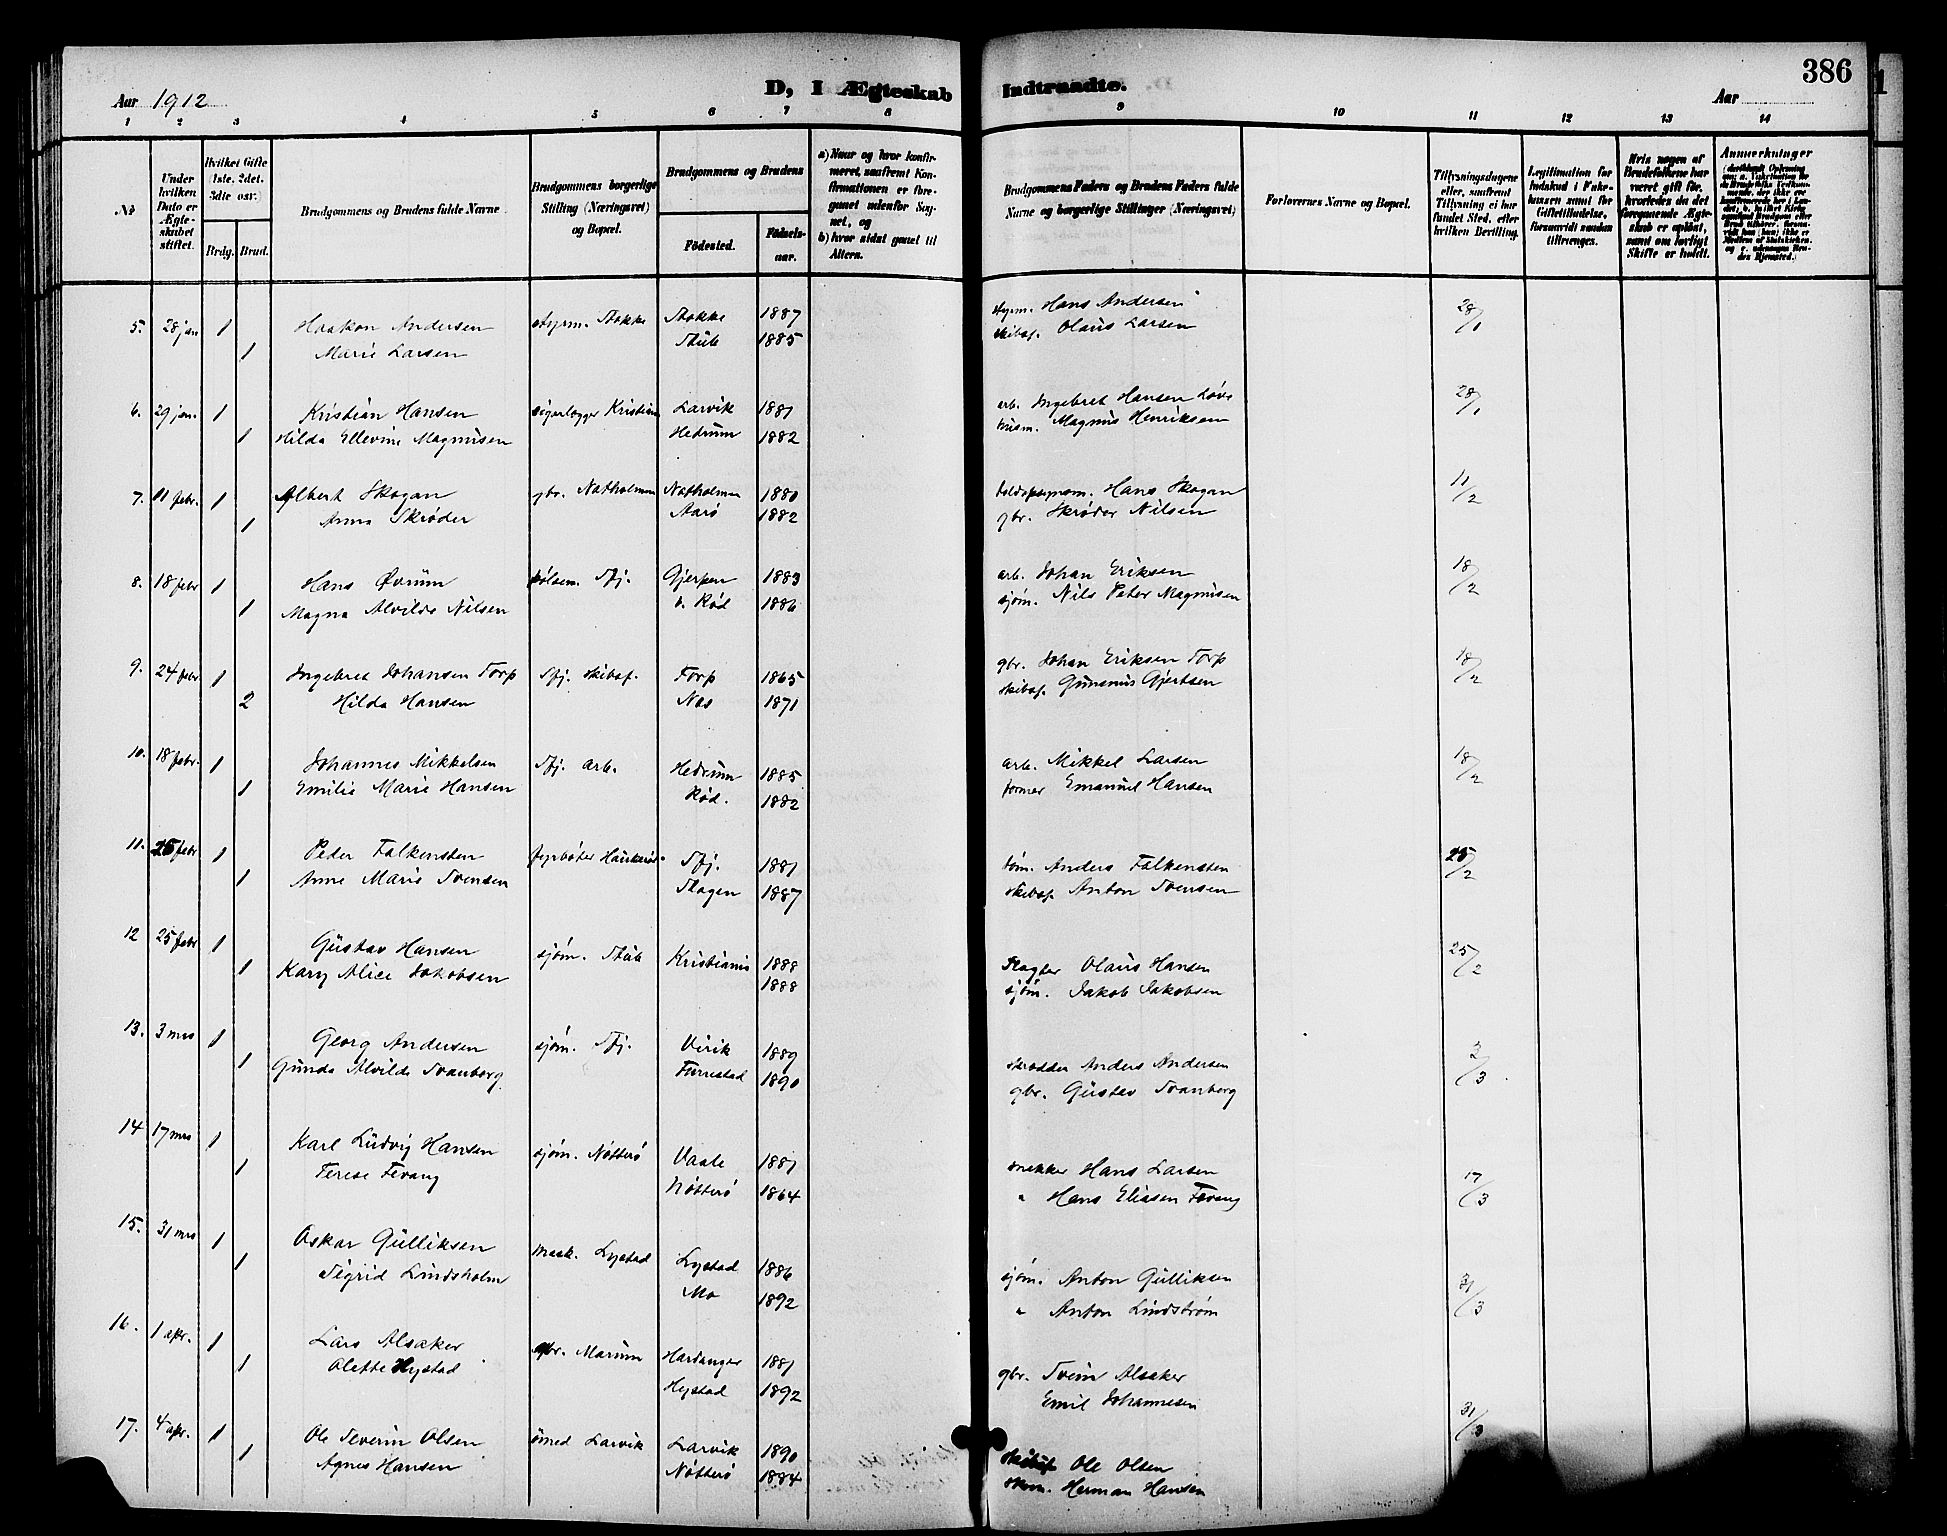 386
D, I Ægteskab Indtraadte.
Aar 1912
Aar
1 2 3 4 5 6 7 8 9 10 11 12 13 14
№
Under hvilken Dato er Ægteskabet stiftet.
Hvilket Gifte (1ste, 2det, 3die osv.)
Brdg. Brud.
Brudgommens og Brudens fulde Navne
Brudgommens borgerlige Stilling (Næringsvei) og Bopæl.
Brudgommens og Brudens
Fødested. Fødselsaar.
a) Naar og hvor konfirmeret, saafremt Konfirmationen er foregaaet udenfor Sognet, og
b) hvor sidst gaaet til Alters.
Brudgommens Faders og Brudens Faders fulde Navne og borgerlige Stillinger (Næringsvei)
Forlovernes Navne og Bopæl.
Tillysningsdagene eller, saafremt Tillysning ei har fundet Sted, efter hvilken Bevilling.
Legitimation for Indskud i Enkekassen samt for Giftetilladelse, forsaavidt saadan tiltrænges.
Hvis nogen af Brudefolkene har været gift før, hvorledes da det foregaaende Ægteskab er opløst, samt om lovligt Skifte er holdt.
Anmerkninger
5. 28 jan 1 Haakon Andersen styrm. Stokke Stokke 1887 styrm. Hans Andersen 28/1
1 Marie Larsen Stub 1885 skibsf. Olaus Larsen
6. 29 jan. 1 Kristian Hansen Larvik 1881 arb. Ingebret Hansen 28/1
1 Hilda Ellevine Magnusen Hedrum 1882 husm. Magnus Henriksen
7. 11 febr. 1 Albert Skogan gbr. Natholmen Natholmen 1880 Hans Skogan 11/2
1 Anna Skrøder Aarø 1882 gbr. Skrøder Nilsen
8. 18 febr 1 Hans Øvrum pølsem. Sfj. Gjerpen 1883 arb. Johan Eriksen 18/2
1 Magna Alvilde Nilsen v. Rød 1886 sjøm. Nils Peter Magnusen
9. 24 febr 1 Ingebret Johansen Torp Sfj. skibsf. Torp 1865 gbr. Johan Eriksen Torp 18/2
2 Hilda Hansen Nes 1871 skibsf. Gunerius Gjertsen
10. 18 febr. 1 Johannes Mikkelsen Sfj. arb. Hedrum 1885 arb. Mikkel Larsen 18/2
1 Emilie Marie Hansen Rød. 1882 former Emanuel Hansen
11. 25 febr 1 Peder Falkensten fyrbøter Haukerød Sfj. 1881 tøm. Anders Falkensten 25/2
1 Anne Marie Svensen Slagen 1887 skibsf. Anton Svensen
12 25 febr 1 Gustav Hansen sjøm. Stub Kristiania 1888 Slagter Olaus Hansen 25/2
1 Kary Alice Jakobsen 1888 sjøm. Jakob Jakobsen
13. 3 mrs 1 Georg Andersen sjøm. Sfj. Virik 1889 skrædder Anders Andersen 3/3
1 Gunda Alvilde Svanberg Furustad 1890 gbr. Gustav Svanberg
14 17 mrs 1 Karl Ludvig Hansen sjøm. Nøtterø Vaale 1881 snekker Hans Larsen 17/3
1 Terese Fevang Nøtterø 1864 " Hans Eliasen Fevang
15. 31 mrs 1 Oskar Gulliksen mask. Lystad Lystad 1886 sjøm. Anton Gulliksen 31/3
1 Sigrid Lindsholm Mo 1892 " Anton Lindstrøm
16. 1 apr. 1 Lars Alsaker gbr. Marum Hardanger 1881 gbr. Svein Alsaker
1 Olette Hystad Hystad 1892 Emil Johannesen
17. 4 apr. 1 Ole Severin Olsen smed Larvik Larvik 1890 skibsf Ole Olsen 31/3
1 Agnes Hansen Nøtterø 1884 skom. Herman Hansen